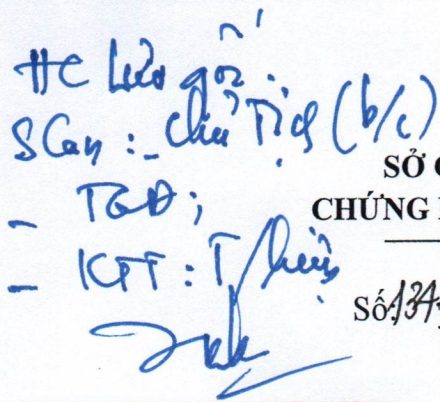 HC lưu gốc.
Scan: - Chủ Tịch (b/c)
- TGĐ;
- KTT: T/hiện
SỞ G
CHỨNG
Số: